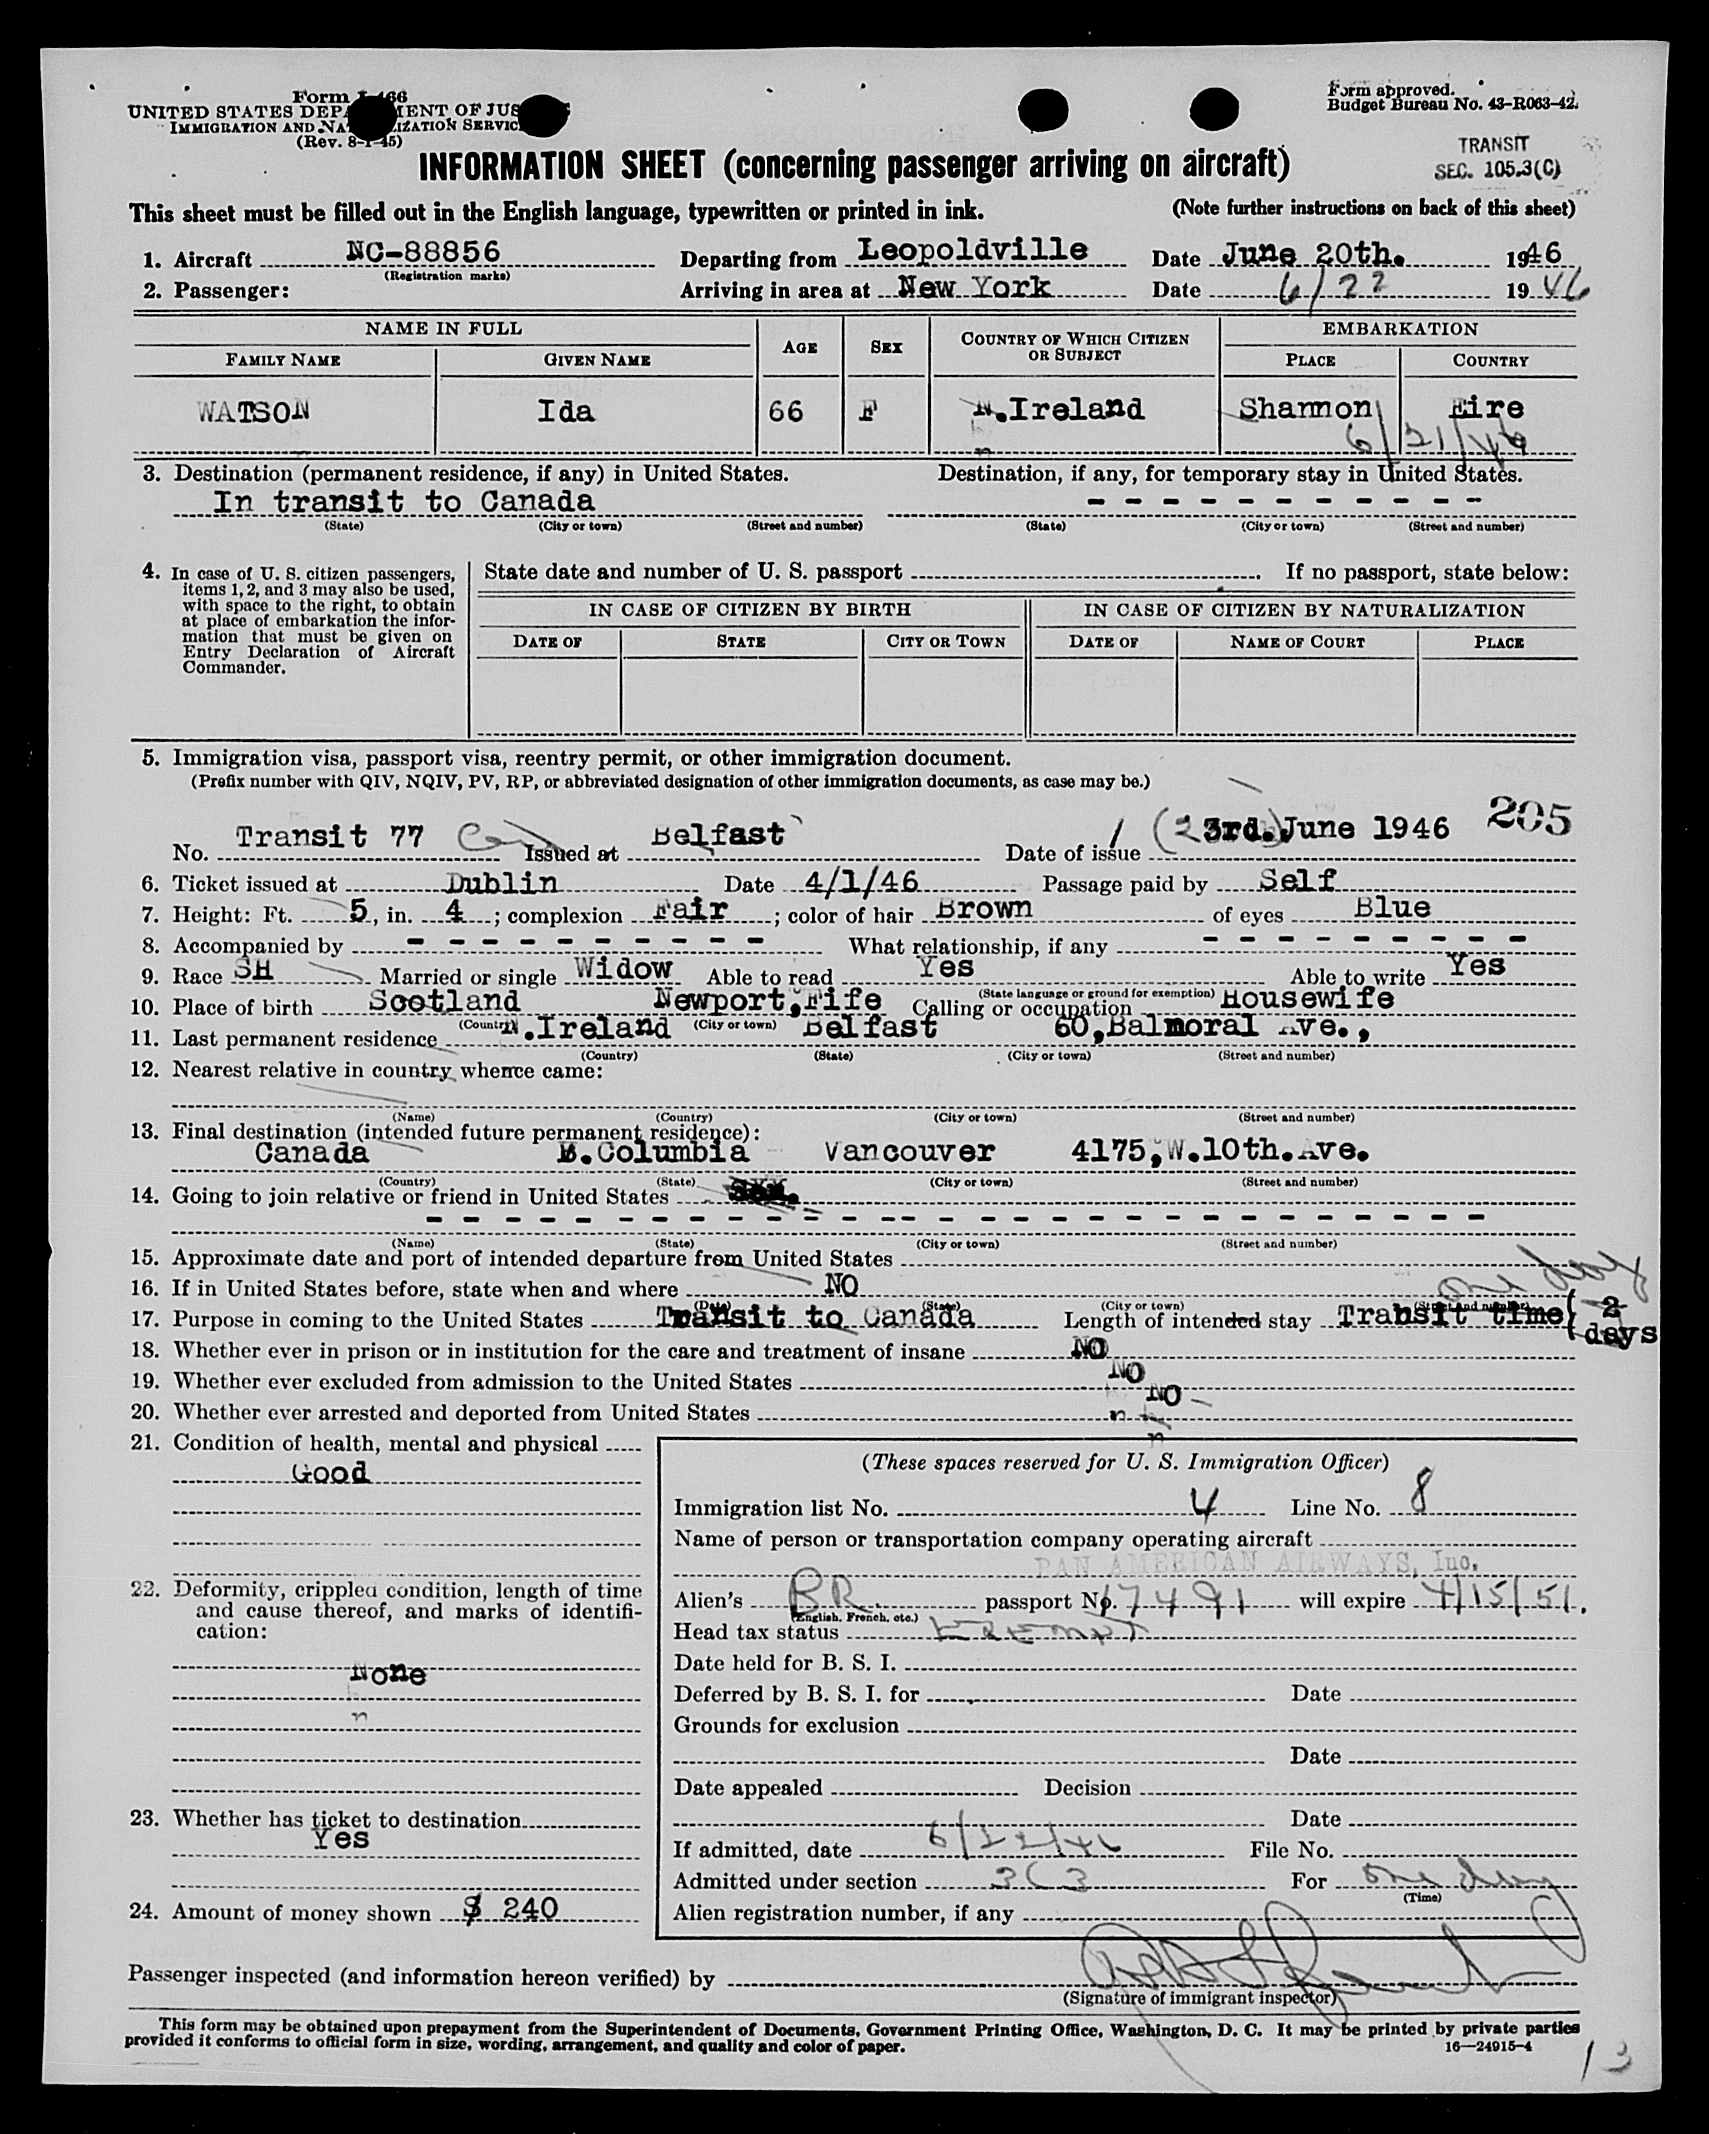 Form I-466
UNITED STATES DEPARTMENT OF JUSTICE
IMMIGRATION AND NATURALIZATION SERVICE
(Rev. 8-1-45)
Form approved.
Budget Bureau No. 43-R063-42.
TRANSIT
SEC. 105.3(C)
INFORMATION SHEET (concerning passenger arriving on aircraft)
This sheet must be filled out in the English language, typewritten or printed in ink. (Note further instructions on back of this sheet)
1. Aircraft NC-88856 Departing from Leopoldville Date June 20th. 1946
(Registration marks)
2. Passenger: Arriving in area at New York Date 6/22 1946
NAME IN FULL AGE SEX COUNTRY OF WHICH CITIZEN OR SUBJECT EMBARKATION
FAMILY NAME GIVEN NAME PLACE COUNTRY
WATSON Ida 66 F N.Ireland Shannon Eire
6/21/46
3. Destination (permanent residence, if any) in United States. Destination, if any, for temporary stay in United States.
In transit to Canada - - - - - - - - - - -
(State) (City or town) (Street and number) (State) (City or town) (Street and number)
4. In case of U. S. citizen passengers, items 1, 2, and 3 may also be used, with space to the right, to obtain at place of embarkation the information that must be given on Entry Declaration of Aircraft Commander.
State date and number of U. S. passport . If no passport, state below:
IN CASE OF CITIZEN BY BIRTH IN CASE OF CITIZEN BY NATURALIZATION
DATE OF STATE CITY OR TOWN DATE OF NAME OF COURT PLACE
5. Immigration visa, passport visa, reentry permit, or other immigration document.
(Prefix number with QIV, NQIV, PV, RP, or abbreviated designation of other immigration documents, as case may be.)
205
No. Transit 77 Issued at Belfast Date of issue 3rd. June 1946
6. Ticket issued at Dublin Date 4/1/46 Passage paid by Self
7. Height: Ft. 5, in. 4; complexion Fair; color of hair Brown of eyes Blue
8. Accompanied by - - - - - - - - - - What relationship, if any - - - - - - - - -
9. Race SH Married or single Widow Able to read Yes Able to write Yes
(State language or ground for exemption)
10. Place of birth Scotland Newport, Fife Calling or occupation Housewife
(Country) (City or town)
11. Last permanent residence N.Ireland Belfast 60, Balmoral Ave.,
(Country) (State) (City or town) (Street and number)
12. Nearest relative in country whence came:
(Name) (Country) (City or town) (Street and number)
13. Final destination (intended future permanent residence):
Canada B.Columbia Vancouver 4175, W.10th. Ave.
(Country) (State) (City or town) (Street and number)
14. Going to join relative or friend in United States
- - - - - - - - - - - - - - - - - - - - - - - - - - - -
(Name) (State) (City or town) (Street and number)
15. Approximate date and port of intended departure from United States
one day
16. If in United States before, state when and where NO
(Date) (State) (City or town) (Street and number)
17. Purpose in coming to the United States Transit to Canada Length of intended stay Transit time ( 2 days
18. Whether ever in prison or in institution for the care and treatment of insane NO
19. Whether ever excluded from admission to the United States NO
20. Whether ever arrested and deported from United States NO
21. Condition of health, mental and physical
Good
22. Deformity, crippled condition, length of time and cause thereof, and marks of identification:
None
23. Whether has ticket to destination
Yes
24. Amount of money shown $ 240
(These spaces reserved for U. S. Immigration Officer)
Immigration list No. 4 Line No. 8
Name of person or transportation company operating aircraft
PAN AMERICAN AIRWAYS, Inc.
Alien's BR. passport No. 17491 will expire 4/15/51.
(English, French, etc.)
Head tax status EXEMPT
Date held for B. S. I.
Deferred by B. S. I. for Date
Grounds for exclusion
Date
Date appealed Decision
Date
If admitted, date 6/22/46 File No.
Admitted under section 3(3 For one day
(Time)
Alien registration number, if any
Passenger inspected (and information hereon verified) by
(Signature of immigrant inspector)
This form may be obtained upon prepayment from the Superintendent of Documents, Government Printing Office, Washington, D. C. It may be printed by private parties
provided it conforms to official form in size, wording, arrangement, and quality and color of paper. 16—24915-4
13